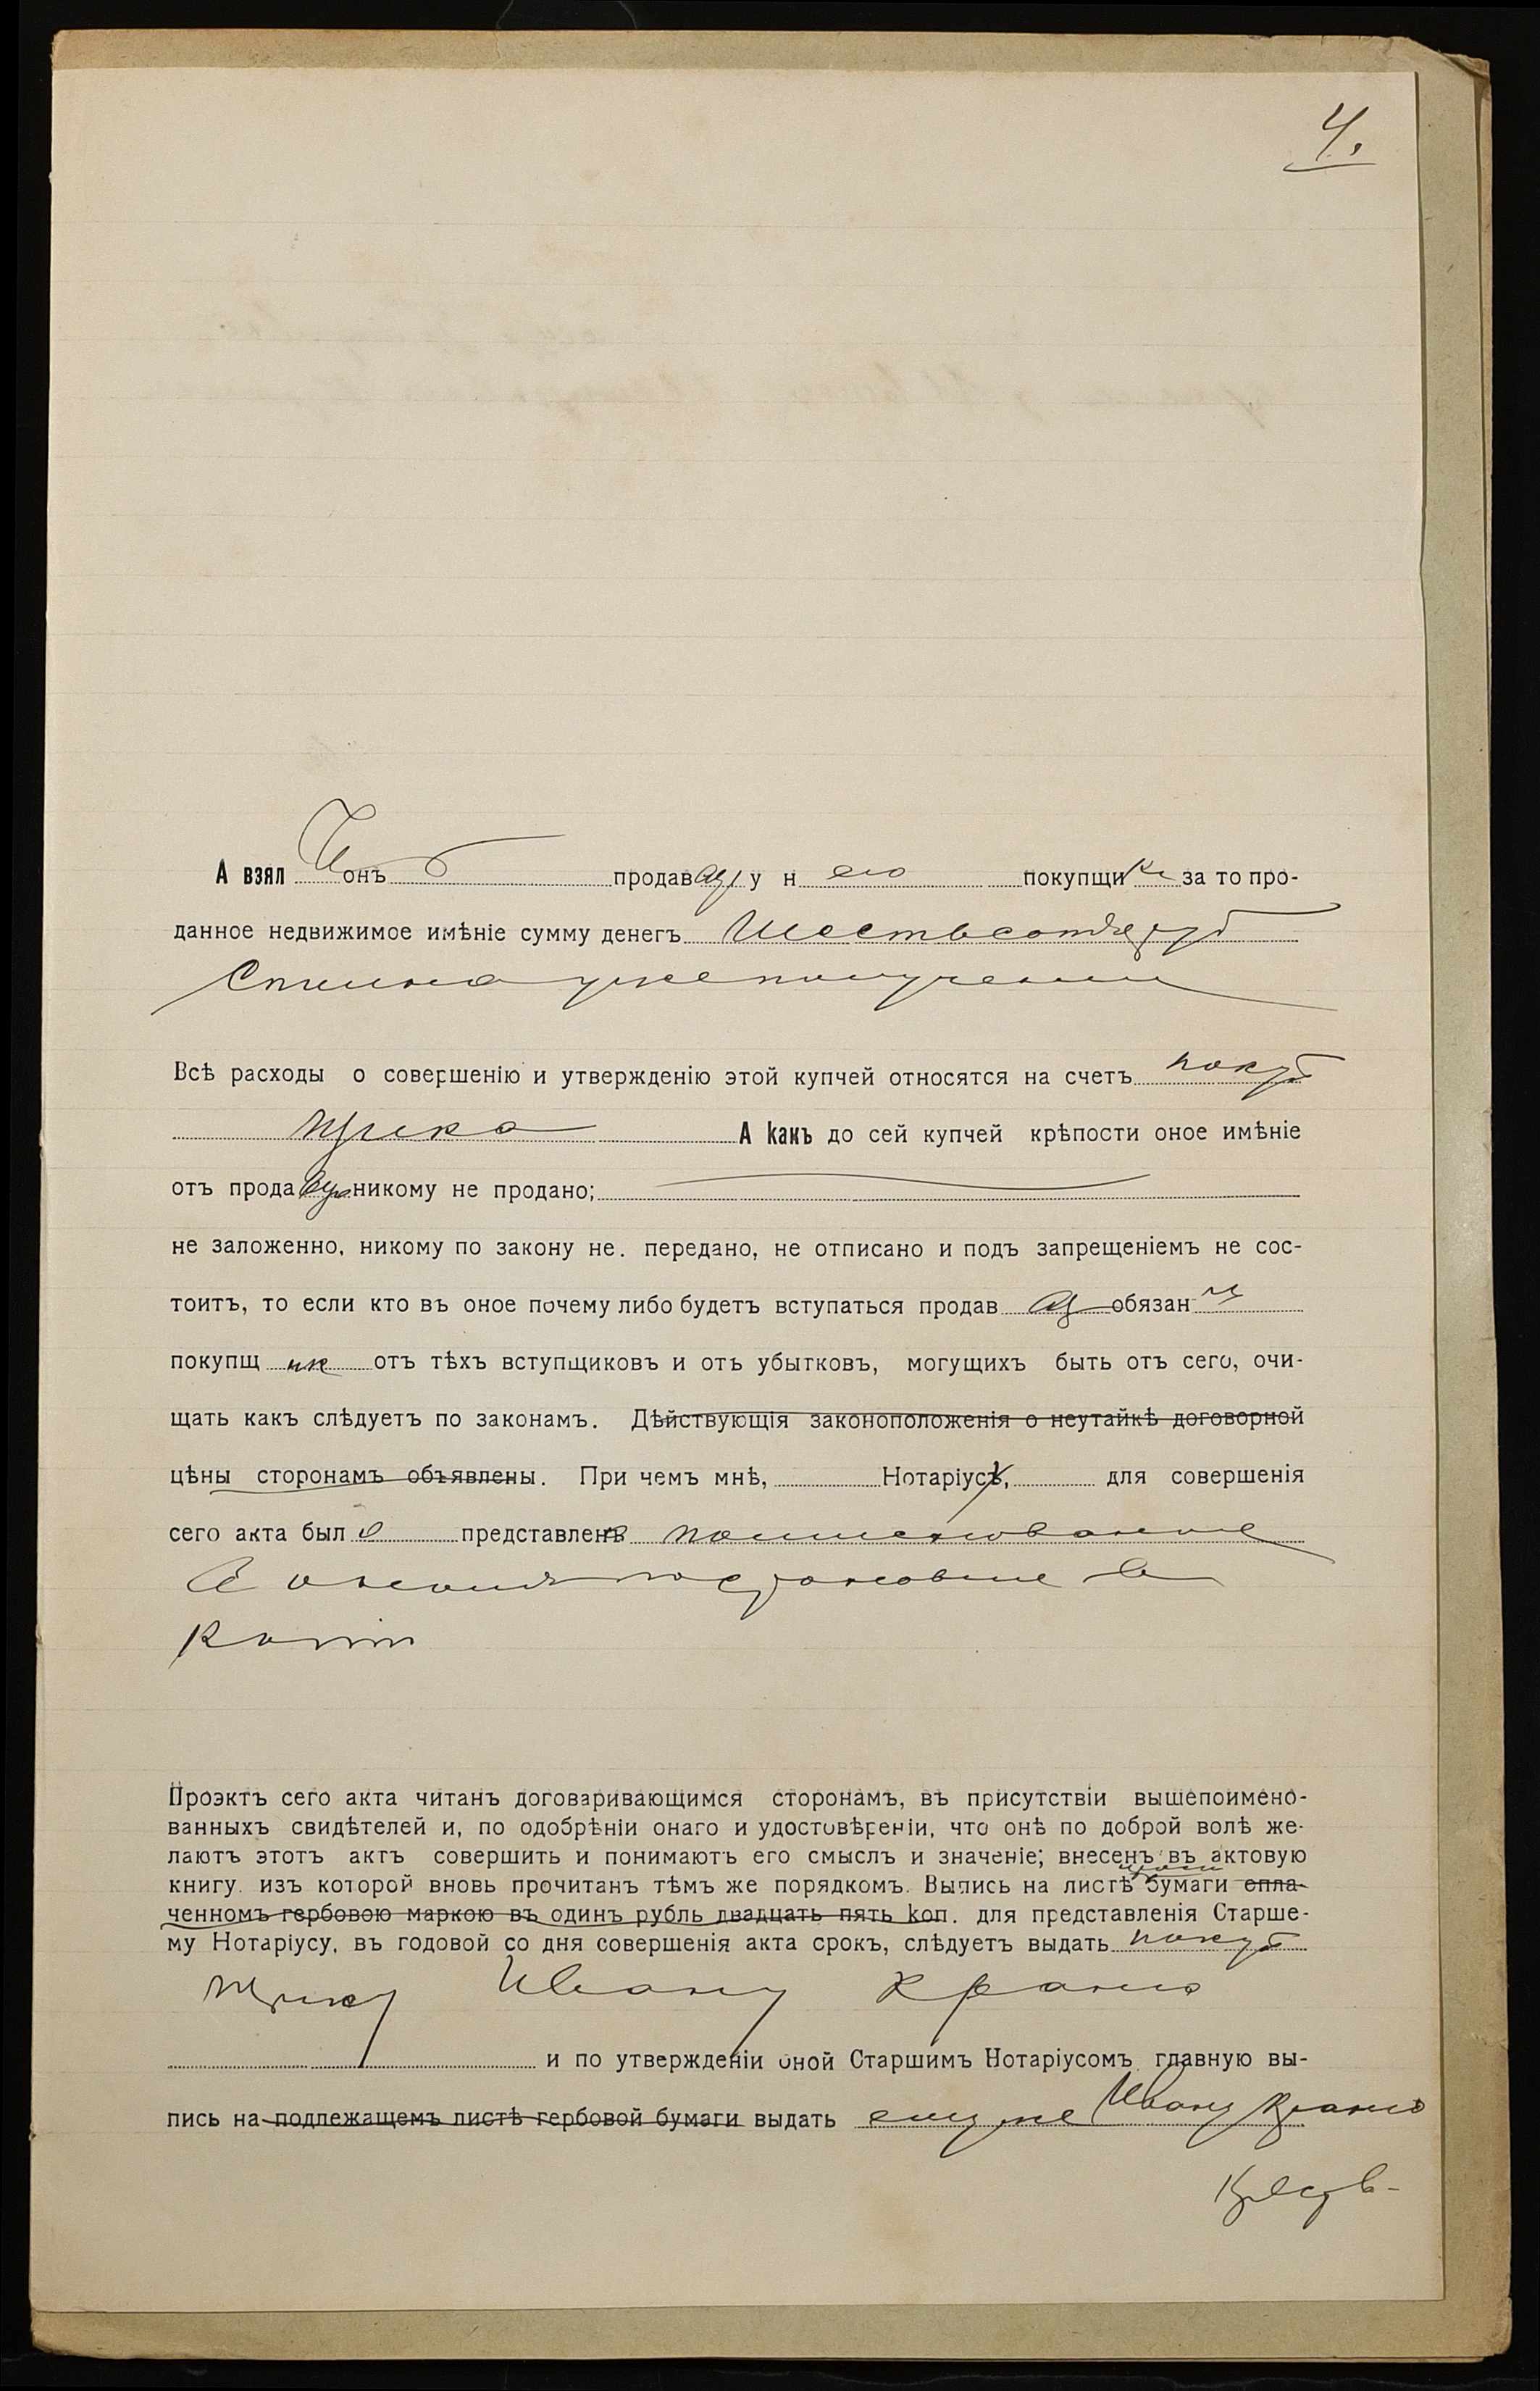 4.
А взял онъ продавец у него покупщика за то про-
данное недвижимое имѣніе сумму денегъ Шестьсотъ руб
сполна уже полученными
Всѣ расходы о совершенію и утвержденію этой купчей относятся на счетъ покуп
щика А какъ до сей купчей крѣпости оное имѣніе
отъ продавца никому не продано;
не заложенно, никому по закону не. передано, не отписано и подъ запрещеніемъ не сос-
тоитъ, то если кто въ оное почему либо будетъ вступаться продавец обязан
покупщик отъ тѣхъ вступщиковъ и отъ убытковъ, могущихъ быть отъ сего, очи-
щать какъ слѣдуетъ по законамъ. Дѣйствующія законоположенія о неутайкѣ договорной
цѣны сторонамъ объявлены. При чемъ мнѣ, Нотаріусъ, для совершенія
сего акта был представлен
копіи
Проэктъ сего акта читанъ договаривающимся сторонамъ, въ присутствіи вышепоимено-
ванныхъ свидѣтелей и, по одобрѣніи онаго и удостовѣреніи, что онѣ по доброй волѣ же-
лаютъ этотъ актъ совершить и понимаютъ его смыслъ и значеніе; внесенъ въ актовую
книгу. изъ которой вновь прочитанъ тѣмъ же порядкомъ. Выпись на листѣ бумаги опла-
ченномъ гербовою маркою въ одинъ рубль двадцать пять коп. для представленія Старше-
му Нотаріусу, въ годовой со дня совершенія акта срокъ, слѣдуетъ выдать покуп
щику Ивану
и по утвержденіи оной Старшимъ Нотаріусомъ главную вы-
пись на подлежащемъ листѣ гербовой бумаги выдать ему же Ивану